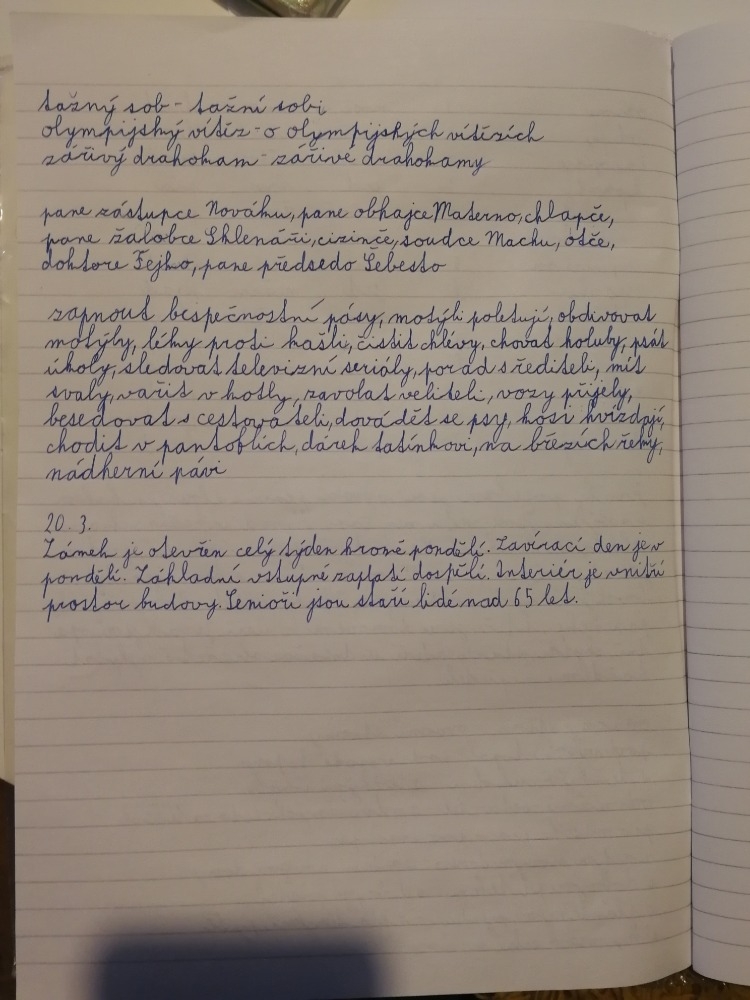 tažný sob - tažní sobi
olympijský vítěz - o olympijských vítězích
zářivý drahokam - zářivé drahokamy
pane zástupce Nováku, pane obhajce Materno, chlapče,
pane žalobce Sklenáři, cizinče, soudce Machu, otče,
doktore Fejko, pane předsedo Šebesto
zapnout bespečnostní pásy, motýli poletují, obdivovat
motýly, léky proti kašli, čistit chlévy, chovat holuby, psát
úkoly, sledovat televizní seriály, porad s řediteli, mít
svaly, vařit v kotly, zavolat veliteli, vozy přijely,
besedovat s cestovateli, dovádět se psy, kosi hvízdají,
chodit v pantoflích, dárek tatínkovi, na březích řeky,
nádherní pávi
20. 3.
Zámek je otevřen celý týden kromě pondělí. Zavírací den je v
pondělí. Základní vstupné zaplatí dospělí. Interiér je vnitřní
prostor budovy. Senioři jsou staří lidé nad 65 let.